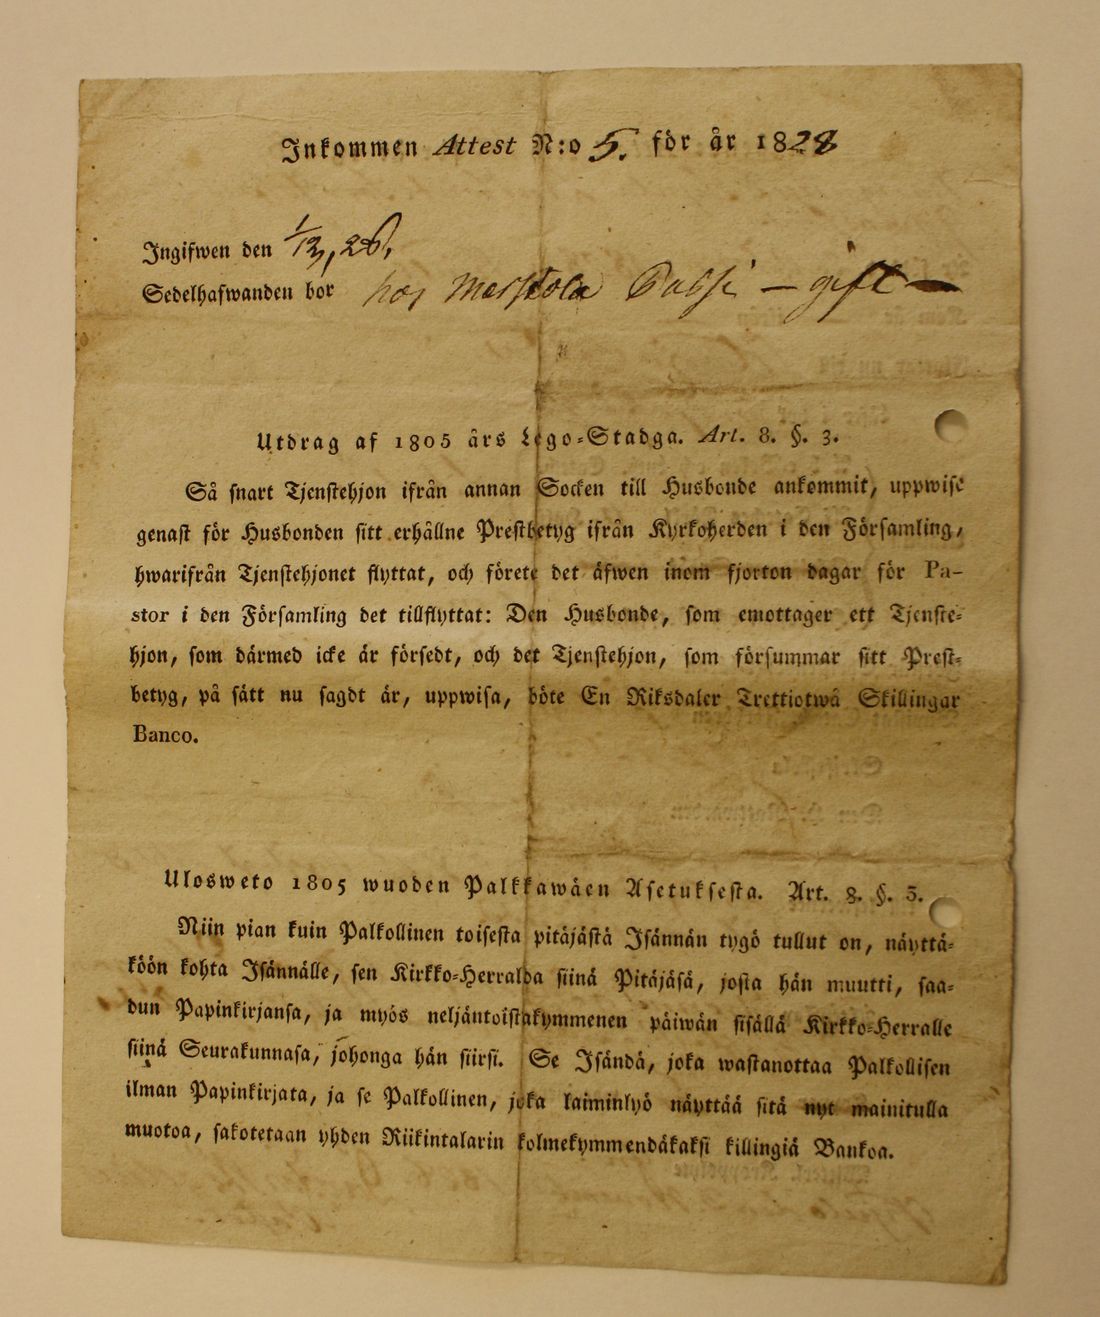 Inkommen Attest N:o 5. för år 1828
Ingifwen den 1/12, 28.
Sedelhafwanden bor hos – gift –
Utdrag af 1805 års Lego-Stadga. Art. 8. §. 3.
Så snart Tjenstehjon ifrån annan Socken till Husbonde ankommit, uppwise
genast för Husbonden sitt erhållne Prestbetyg ifrån Kyrkoherden i den Församling,
hwarifrån Tjenstehjonet flyttat, och förete det äfwen inom fjorton dagar för Pa-
stor i den Församling det tillflyttat: Den Husbonde, som emottager ett Tjenste-
hjon, som därmed icke är försedt, och det Tjenstehjon, som försummar sitt Prest-
betyg, på sätt nu sagdt är, uppwisa, böte En Riksdaler Trettiotwå Skillingar
Banco.
Ulosweto 1805 wuoden Palkkawäen Asetuksesta. Art. 8. §. 3.
Niin pian kuin Palkollinen toisesta pitäjästä Isännän tygö tullut on, näyttä-
köön kohta Isännälle, sen Kirkko-Herralda siinä Pitäjäsä, josta hän muutti, saa-
dun Papinkirjansa, ja myös neljäntoistakymmenen päiwän sisällä Kirkko-Herralle
siinä Seurakunnasa, johonga hän siirsi. Se Isändä, joka wastanottaa Palkollisen
ilman Papinkirjata, ja se Palkollinen, joka laiminlyö näyttää sitä nyt mainitulla
muotoa, sakotetaan yhden Riikintalarin kolmekymmendäkaksi killingiä Bankoa.